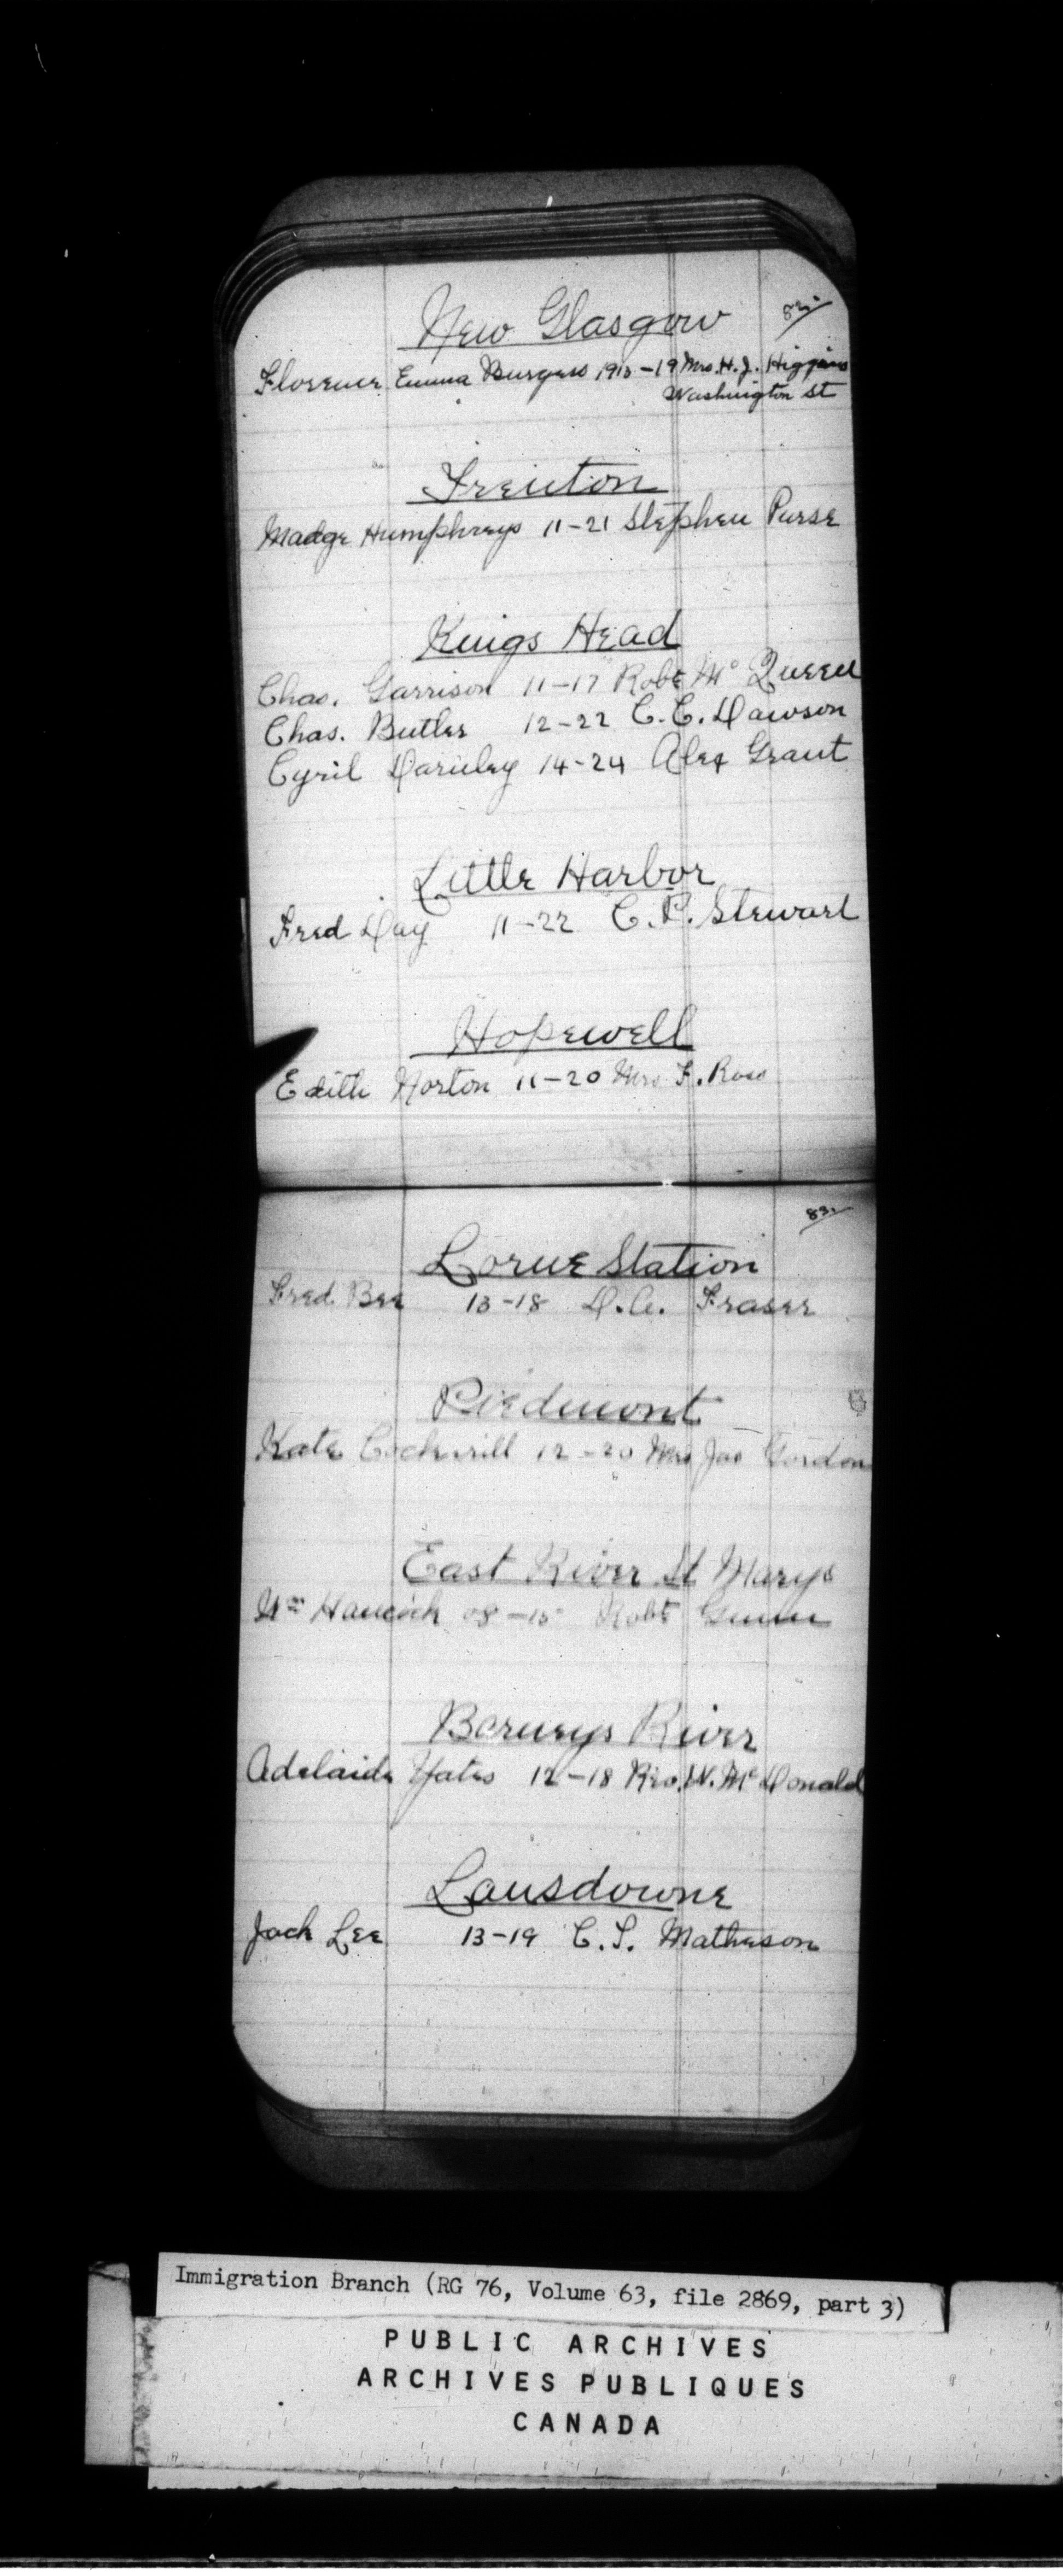 83.
New Glasgow
Florence Emma Burgess 1913-19 Mrs. H. J. Higgins
Washington St
Trenton
Madge Humphreys 11-21 Stephen Purse
Kings Head
Chas. Garrison 11-17 Robt Mc Queen
Chas. Butler 12-22 C. C. Dawson
Cyril Darnley 14-24 Alex Grant
Little Harbor
Fred Day 11-22 C. P. Stewart
Hopewell
Edith Norton 11-20 Mrs F. Ross
83.
Lorne Station
Fred Bee 13-18 D. C. Fraser
Piedmont
Kate Cockerill 12-20 Mrs Jas Gordon
East River St Marys
Wm Hancock 08-15 Robt Gunn
Barneys River
Adelaide Yates 12-18 Rev. W. Mc Donald
Lansdowne
Jack Lee 13-19 C. S. Matheson
Immigration Branch (RG 76, Volume 63, file 2869, part 3)
PUBLIC ARCHIVES
ARCHIVES PUBLIQUES
CANADA